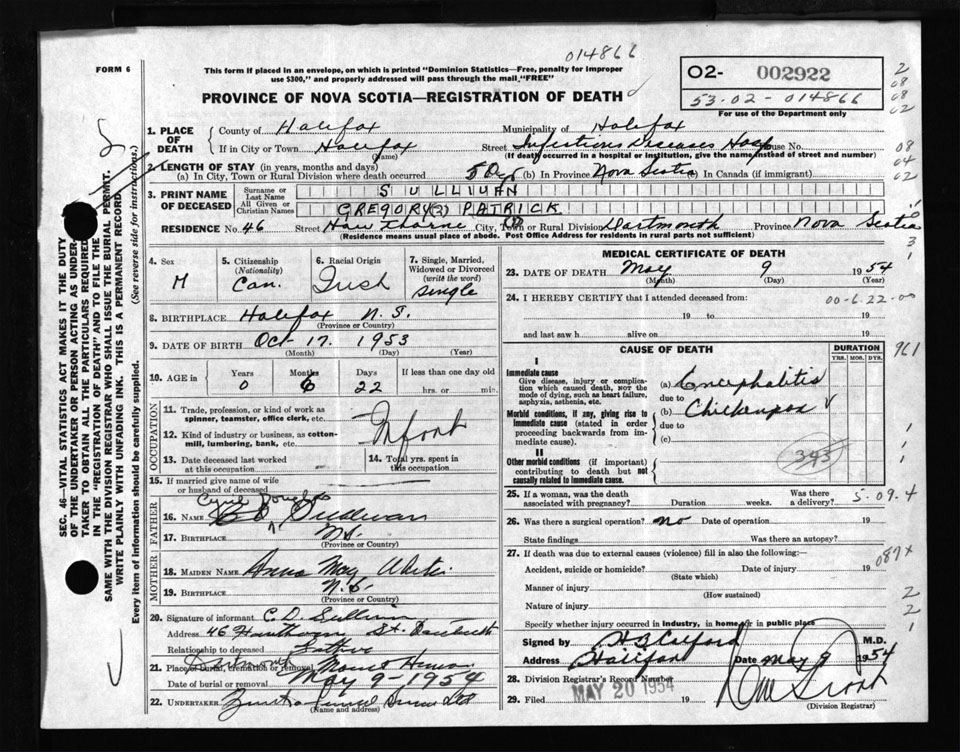 014866
FORM 6
This form if placed in an envelope, on which is printed "Dominion Statistics—Free, penalty for improper
use $300," and properly addressed will pass through the mail "FREE"
PROVINCE OF NOVA SCOTIA—REGISTRATION OF DEATH
O2- 002922
53-02-014866
For use of the Department only
2
08
08
02
08
04
02
1. PLACE OF DEATH
County of Halifax Municipality of Halifax
If in City or Town Halifax Street Infectious Diseases Hosp House No.
(Name) (If death occurred in a hospital or institution, give the name instead of street and number)
2. LENGTH OF STAY (in years, months and days)
(a) In City, Town or Rural Division where death occurred 5 Dys (b) In Province Nova Scotia (c) In Canada (if immigrant)
3. PRINT NAME OF DECEASED
Surname or Last Name SULLIVAN
All Given or Christian Names GREGORY (3) PATRICK
RESIDENCE No. 46 Street City, Town or Rural Division Dartmouth Province Nova Scotia
(Residence means usual place of abode. Post Office Address for residents in rural parts not sufficient)
4. Sex M
5. Citizenship (Nationality) Can.
6. Racial Origin Irish
7. Single, Married, Widowed or Divorced (write the word) single
8. BIRTHPLACE Halifax N. S.
(Province or Country)
9. DATE OF BIRTH Oct 17. 1953
(Month) (Day) (Year)
10. AGE in Years 0 Months 6 Days 22 If less than one day old hrs. or min.
OCCUPATION
11. Trade, profession, or kind of work as spinner, teamster, office clerk, etc.
Infant
12. Kind of industry or business, as cotton-mill, lumbering, bank, etc.
13. Date deceased last worked at this occupation
14. Total yrs. spent in this occupation
15. If married give name of wife or husband of deceased
FATHER
Cyril Douglas
16. NAME C D Sullivan
17. BIRTHPLACE N.S.
(Province or Country)
MOTHER
18. MAIDEN NAME Anna May
19. BIRTHPLACE N.S.
(Province or Country)
20. Signature of informant C. D. Sullivan
Address 46 Hawthorne St. Dartmouth
Relationship to deceased Father
21. Place of burial, cremation or removal Dartmouth Mount Herman
Date of burial or removal May 9-1954
22. UNDERTAKER Funeral Ltd
(Name and address)
MEDICAL CERTIFICATE OF DEATH
23. DATE OF DEATH May 9 1954
(Month) (Day) (Year)
24. I HEREBY CERTIFY that I attended deceased from:
00-6.22-00
19 to 19
and last saw h alive on 19
CAUSE OF DEATH
DURATION
YRS. MOS. DYS.
961
I
Immediate cause
Give disease, injury or complication which caused death, NOT the mode of dying, such as heart failure, asphyxia, asthenia, etc.
(a) Encephalitis
due to
Morbid conditions, if any, giving rise to immediate cause (stated in order proceeding backwards from immediate cause).
(b) Chickenpox
due to
(c)
II
Other morbid conditions (if important) contributing to death but not causally related to immediate cause.
343
25. If a woman, was the death associated with pregnancy? Duration weeks. Was there a delivery?
5-09-4
26. Was there a surgical operation? no Date of operation 19
State findings Was there an autopsy?
27. If death was due to external causes (violence) fill in also the following:—
Accident, suicide or homicide? Date of injury 19
(State which)
087x
Manner of injury
(How sustained)
Nature of injury
2
2
Specify whether injury occurred in industry, in home, or in public place
Signed by M.D.
Address Halifax Date May 9 1954
28. Division Registrar's Record Number
29. Filed MAY 20 1954 19
(Division Registrar)
SEC. 46—VITAL STATISTICS ACT MAKES IT THE DUTY
OF THE UNDERTAKER OR PERSON ACTING AS UNDER-
TAKER TO OBTAIN ALL THE PARTICULARS REQUIRED
IN THE "REGISTRATION OF DEATH" AND TO FILE THE
SAME WITH THE DIVISION REGISTRAR WHO SHALL ISSUE THE BURIAL PERMIT.
WRITE PLAINLY WITH UNFADING INK. THIS IS A PERMANENT RECORD
Every item of information should be carefully supplied. (See reverse side for instructions.)